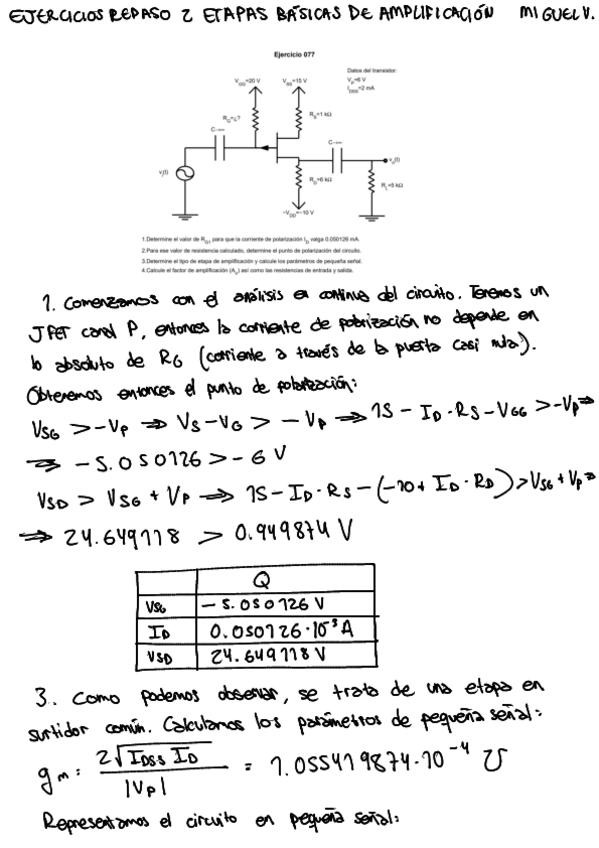 EJERCICIOS REPASO 2 ETAPAS BÁSICAS DE AMPLIFICACIÓN MIGUEL V.
Ejercicio 077
Datos del transistor:
V_GG=20 V V_SS=15 V V_P=6 V
I_DSS=2 mA
R_G=¿? R_S=1 kΩ
C→∞ C→∞
v_o(t)
v_i(t) R_D=6 kΩ R_L=5 kΩ
-V_DD=-10 V
1.Determine el valor de R_G, para que la corriente de polarización I_D valga 0.050126 mA.
2.Para ese valor de resistencia calculado, determine el punto de polarización del circuito.
3.Determine el tipo de etapa de amplificación y calcule los parámetros de pequeña señal.
4.Calcule el factor de amplificación (A_v) así como las resistencias de entrada y salida.
1. Comenzamos con el análisis en continua del circuito. Tenemos un
JFET canal P, entonces la corriente de polarización no depende en
lo absoluto de RG (corriente a través de la puerta casi nula).
Obtenemos entonces el punto de polarización:
VSG > -VP ⇒ VS - VG > - VP ⇒ 15 - ID·RS - VGG > -VP ⇒
⇒ -5.050126 > -6 V
VSD > VSG + VP ⇒ 15 - ID·RS - (-10 + ID·RD) > VSG + VP ⇒
⇒ 24.649118 > 0.949874 V
Q
VSG -5.050126 V
ID 0.050126·10⁻³ A
VSD 24.649118 V
3. Como podemos observar, se trata de una etapa en
surtidor común. Calculamos los parámetros de pequeña señal:
gm = 2√(IDSS ID) / |VP| = 1.055419874·10⁻⁴ ℧
Representamos el circuito en pequeña señal: